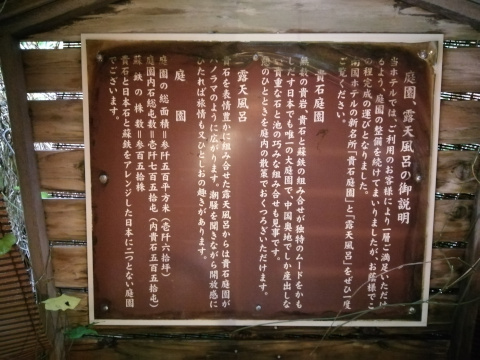 庭園、露天風呂の御説明
当ホテルでは、ご利用のお客様により一層ご満足いただけ
るよう、庭園の整備を続けてまいりましたが、お蔭様でこ
の程完成の運びとなりました。
南国ホテルの新名所「貴石庭園」と「露天風呂」をぜひ一度
ご覧ください。
貴石庭園
無数の貴岩、貴石と蘇鉄の組み合せが独特のムードをかも
しだす日本でも唯一の大庭園で、中国奥地でしか産出しな
い貴重な石と池の巧みな組み合せも見事です。
旅のひとときを庭内の散策でおくつろぎいただけます。
露天風呂
貴石を表情豊かに組み合せた露天風呂からは貴石庭園が
パノラマのように広がります。潮騒を聞きながら開放感に
ひたれば旅情も又ひとしおの趣きがあります。
庭園
庭園の総面積＝参阡五百平方米（壱阡六拾坪）
庭園内石総屯数＝壱阡七百五拾屯（内貴石五百五拾屯）
蘇鉄の株数＝参百五拾株
貴石と日本石と蘇鉄をアレンジした日本に二つとない庭園
でございます。